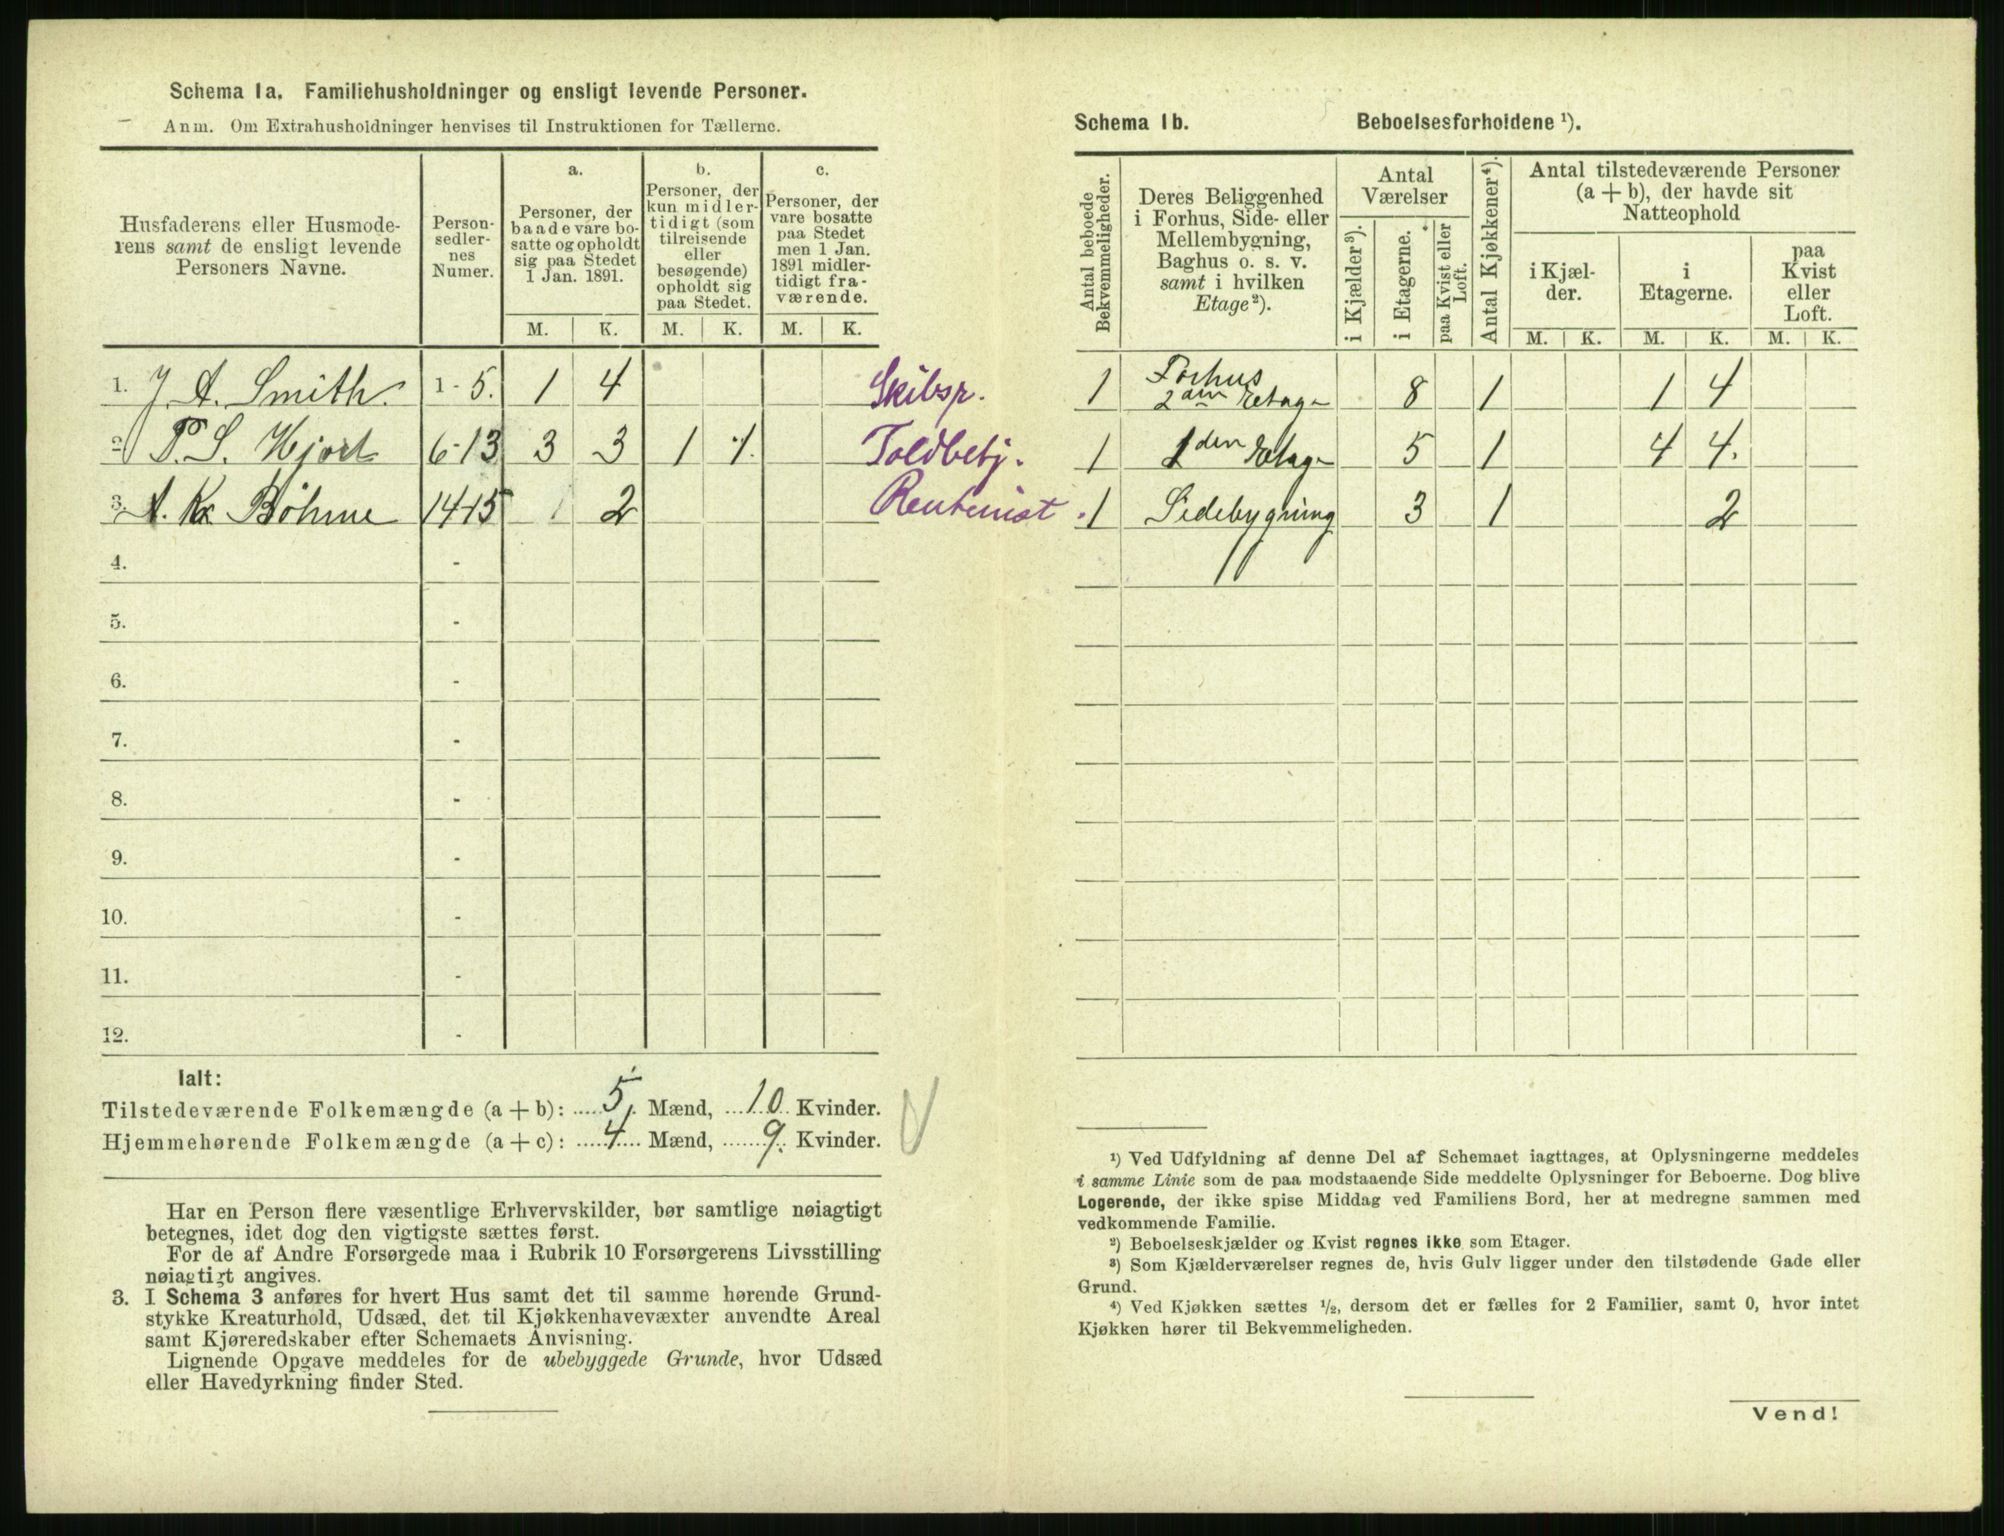 Schema 1a. Familiehusholdninger og ensligt levende Personer.
Anm. Om Extrahusholdninger henvises til Instruktionen for Tællerne.
Husfaderens eller Husmoderens samt de ensligt levende Personers Navne.
Personsedlernes Numer.
a.
Personer, der baade vare bosatte og opholdt sig paa Stedet 1 Jan. 1891.
b.
Personer, der kun midlertidigt (som tilreisende eller besøgende) opholdt sig paa Stedet.
c.
Personer, der vare bosatte paa Stedet men 1 Jan. 1891 midlertidigt fraværende.
M. K. M. K. M. K.
1. J. A. Smith. 1 - 5. 1 4 Skibsr.
2. P. S. Hjort 6-13 3 3 1 1. Toldbetj.
3. A. K. Böhme 14-15 2 Rentenist
4. -
5. -
6. -
7. -
8. -
9. -
10. -
11. -
12. -
Ialt:
Tilstedeværende Folkemængde (a + b): 5. Mænd, 10 Kvinder.
Hjemmehørende Folkemængde (a + c): 4 Mænd, 9. Kvinder.
Har en Person flere væsentlige Erhvervskilder, bør samtlige nøiagtigt
betegnes, idet dog den vigtigste sættes først.
For de af Andre Forsørgede maa i Rubrik 10 Forsørgerens Livsstilling
nøiagtigt angives.
3. I Schema 3 anføres for hvert Hus samt det til samme hørende Grund-
stykke Kreaturhold, Udsæd, det til Kjøkkenhavevæxter anvendte Areal
samt Kjøreredskaber efter Schemaets Anvisning.
Lignende Opgave meddeles for de ubebyggede Grunde, hvor Udsæd
eller Havedyrkning finder Sted.
Schema 1b. Beboelsesforholdene ¹).
Antal beboede Bekvemmeligheder.
Deres Beliggenhed i Forhus, Side- eller Mellembygning, Baghus o. s. v. samt i hvilken Etage²).
Antal Værelser
i Kjælder³).
i Etagerne.
paa Kvist eller Loft.
Antal Kjøkkener⁴).
Antal tilstedeværende Personer (a + b), der havde sit Natteophold
i Kjælder.
i Etagerne.
paa Kvist eller Loft.
M. K. M. K. M. K.
1 Forhus 2den Etage 8 1 1 4
1 1den Etage 5 1 4 4.
1 Sidebygning 3 1 2
¹) Ved Udfyldning af denne Del af Schemaet iagttages, at Oplysningerne meddeles
i samme Linie som de paa modstaaende Side meddelte Oplysninger for Beboerne. Dog blive
Logerende, der ikke spise Middag ved Familiens Bord, her at medregne sammen med
vedkommende Familie.
²) Beboelseskjælder og Kvist regnes ikke som Etager.
³) Som Kjælderværelser regnes de, hvis Gulv ligger under den tilstødende Gade eller
Grund.
⁴) Ved Kjøkken sættes ½, dersom det er fælles for 2 Familier, samt 0, hvor intet
Kjøkken hører til Bekvemmeligheden.
Vend!